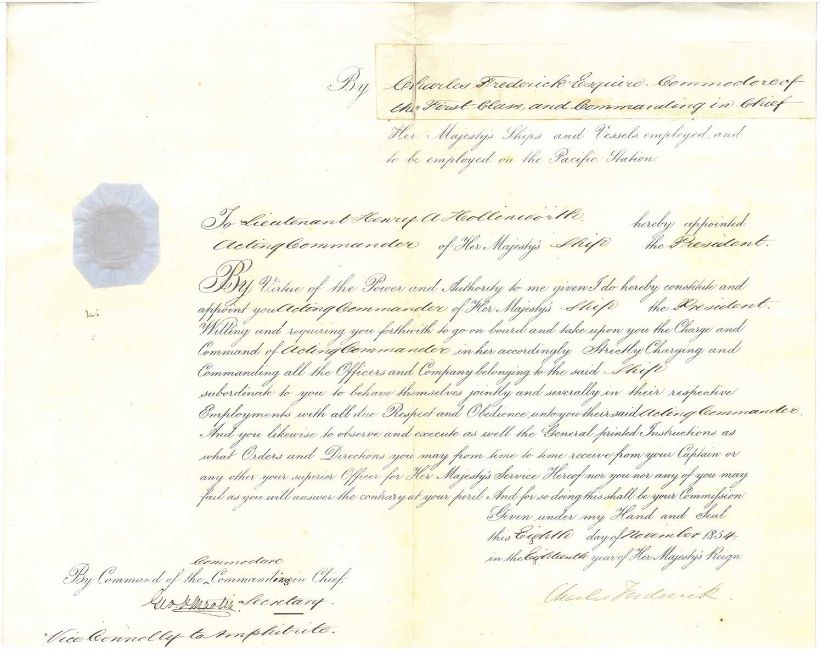 By Charles Frederick Esquire Commodore of
the First Class, and Commanding in Chief
Her Majestys Ships and Vessels employed, and
to be employed on the Pacific Station.
To Lieutenant Henry A Hollinworth. hereby appointed
Acting Commander of Her Majesty's Ship the President.
By Virtue of the Power and Authority to me given I do hereby constitute and
appoint you Acting Commander of Her Majesty's Ship the President.
Willing and requiring you forthwith to go on board and take upon you the Charge and
Command of Acting Commander in her accordingly. Strictly Charging and
Commanding all the Officers and Company belonging to the said Ship
subordinate to you to behave themselves jointly and severally in their respective
Employments with all due Respect and Obedience unto you their said Acting Commander.
And you likewise to observe and execute as well the General printed Instructions as
what Orders and Directions you may from time to time receive from your Captain or
any other your superior Officer for Her Majesty's Service Hereof nor you nor any of you may
fail as you will answer the contrary at your peril. And for so doing this shall be your Commission.
Given under my Hand and Seal
this Eighth day of November 1854.
in the Eighteenth year of Her Majesty's Reign.
Charles Frederick.
Commodore
By Command of the Commanding in Chief.
Secretary.
Vice Connolly to Amphitrite.